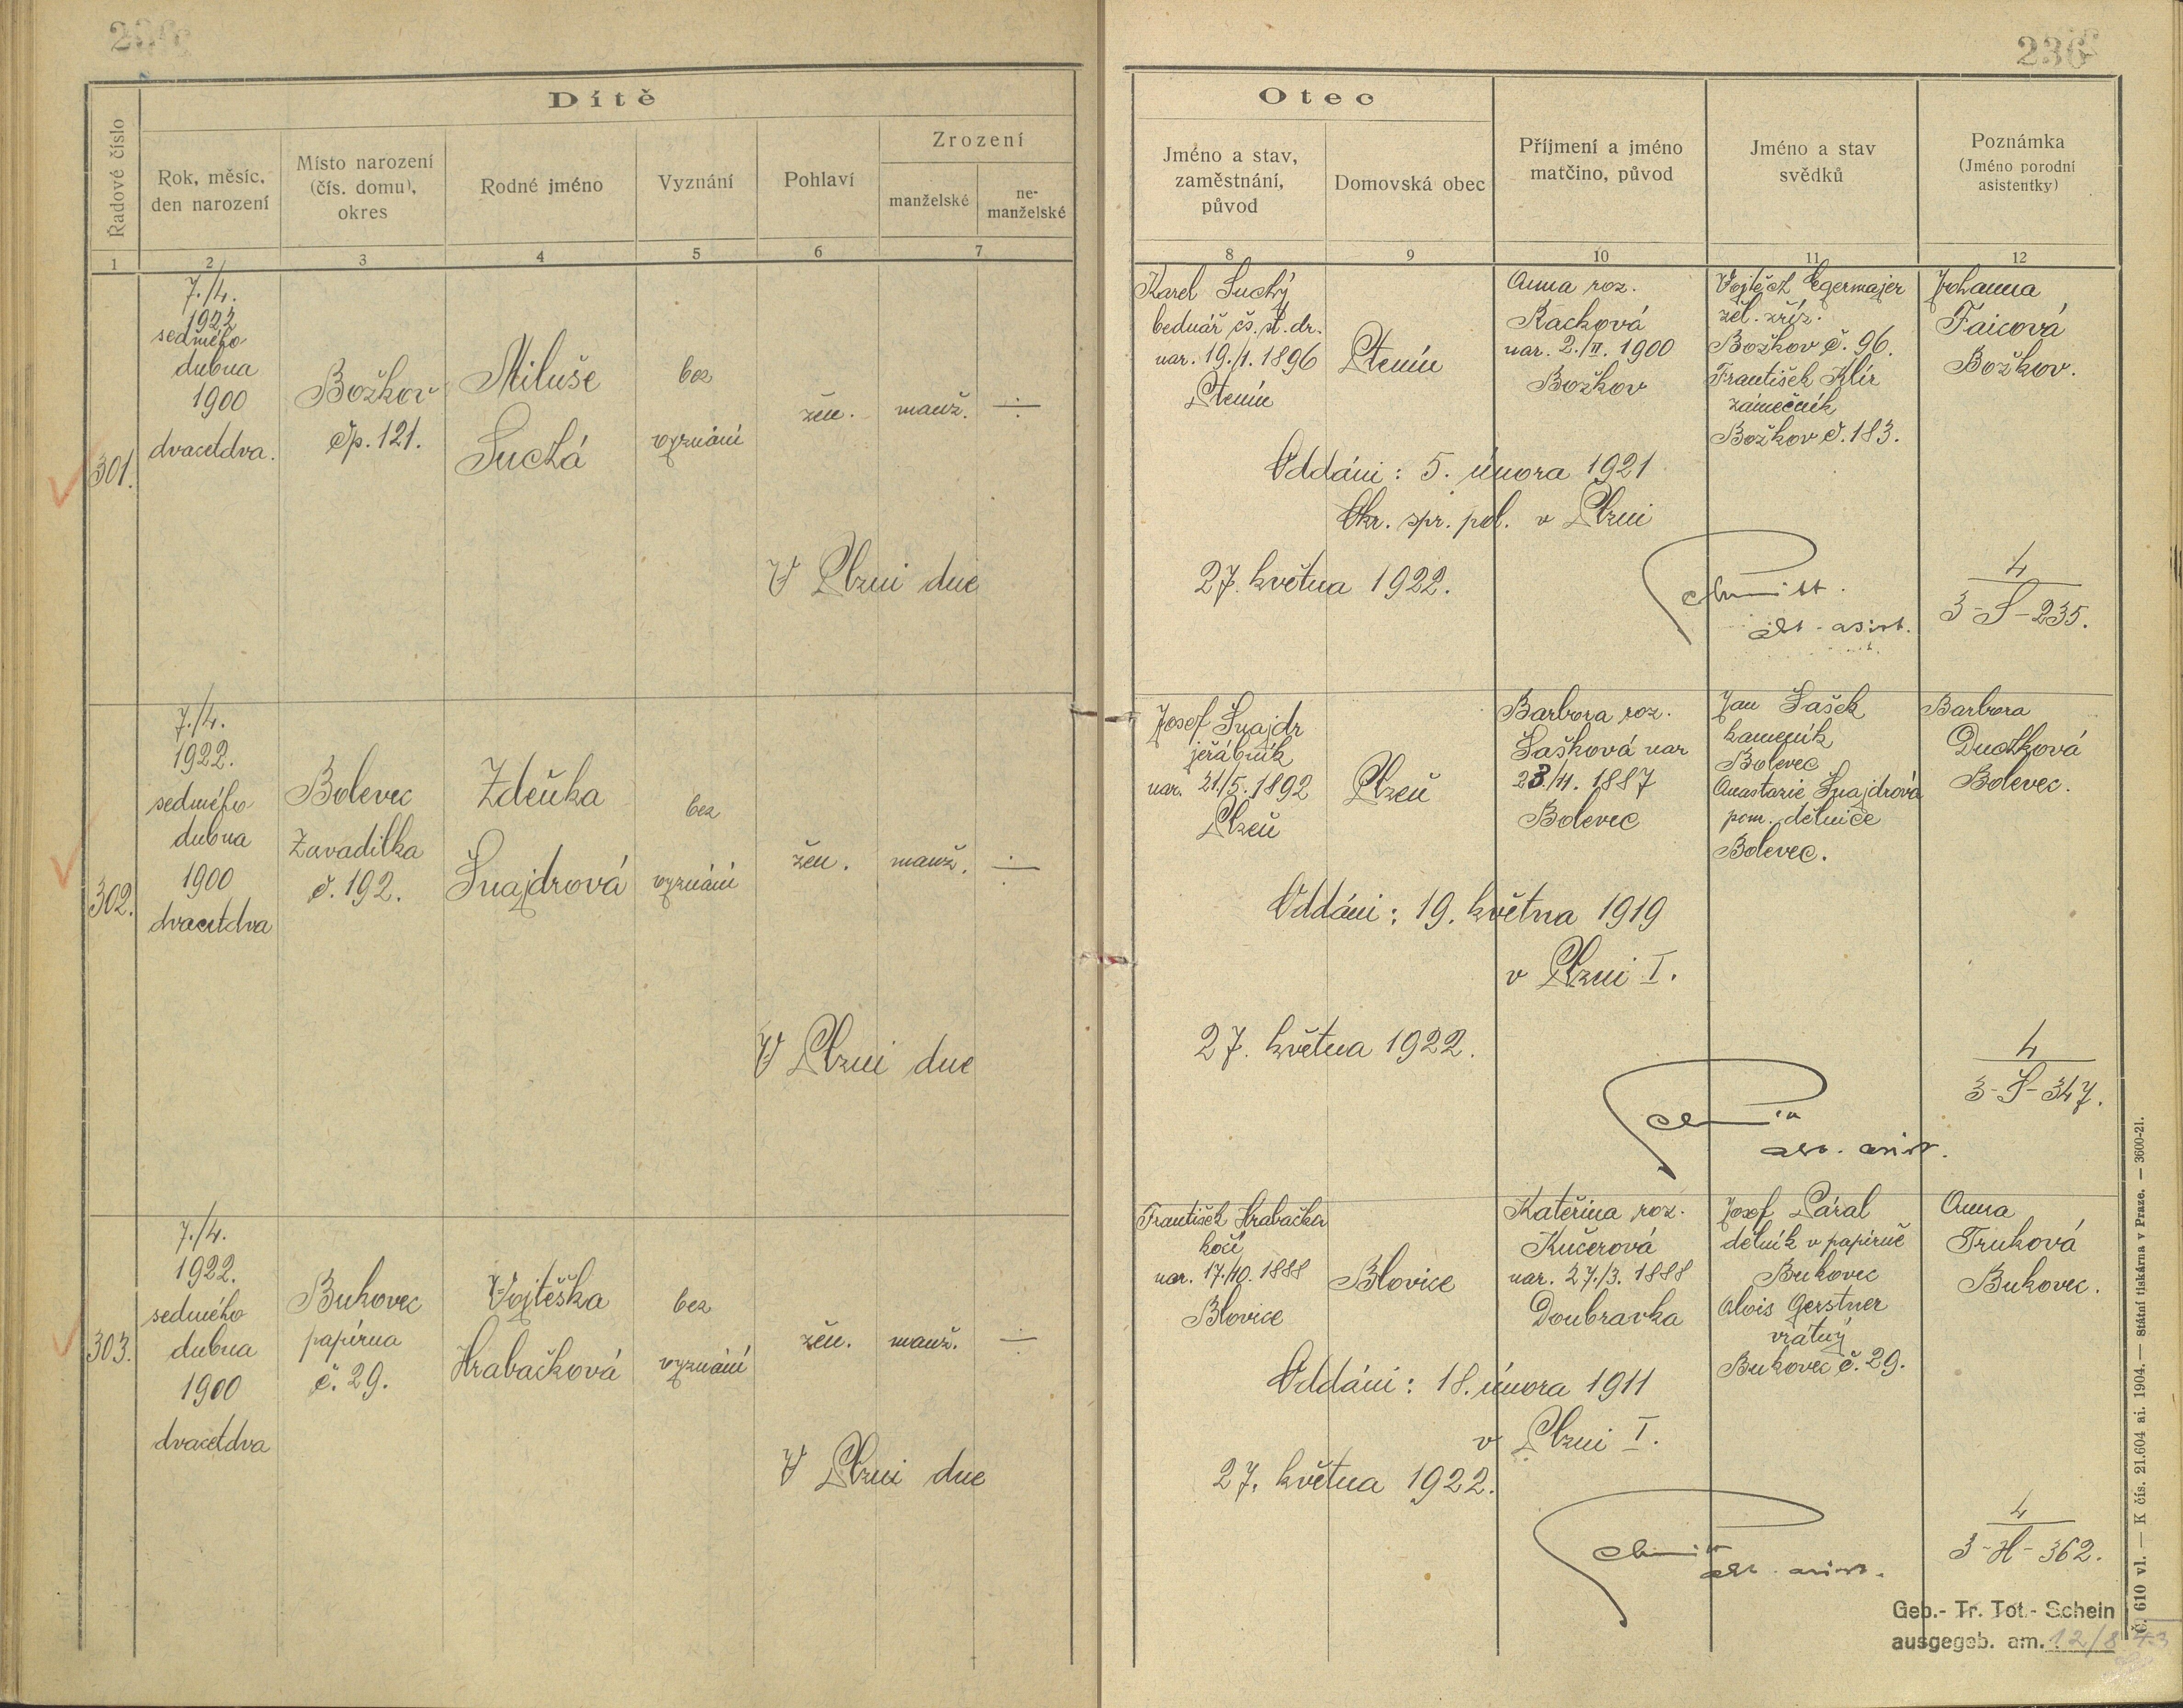 236
Dítě
Řadové číslo
Rok, měsíc,
den narození
Místo narození
(čís. domu),
okres
Rodné jméno
Vyznání
Pohlaví
Zrození
manželské
ne-
manželské
1 2 3 4 5 6 7
301.
7./4.
1922
sedmého
dubna
1900
dvacetdva.
Božkov
čp. 121.
Miluše
Suchá
bez
vyznání
žen.
manž.
V Plzni dne
302.
7./4.
1922.
sedmého
dubna
1900
dvacetdva
Bolevec
Zavadilka
č. 192.
Zdeňka
Šnajdrová
bez
vyznání
žen.
manž.
V Plzni dne
303.
7./4.
1922.
sedmého
dubna
1900
dvacetdva
Bukovec
papírna
č. 29.
Vojtěška
Hrabačková
bez
vyznání
žen.
manž.
V Plzni dne
236
Otec
Jméno a stav,
zaměstnání,
původ
Domovská obec
Příjmení a jméno
matčino, původ
Jméno a stav
svědků
Poznámka
(Jméno porodní
asistentky)
8 9 10 11 12
Karel Suchý
bednář čs. st. dr.
nar. 19./1. 1896
Štenín
Anna roz.
Racková
nar. 2./II. 1900
Božkov
Vojtěch Egermajer
žel. zříz.
Božkov č. 96.
František Klír
zámečník
Božkov č. 183.
Johanna
Faicová
Božkov.
Oddáni: 5. února 1921
Okr. spr. pol. v Plzni
27. května 1922.
Schmidt.
4
3-S-235.
Josef Šnajdr
jeřábník
nar. 21./5. 1892
Plzeň
Plzeň
Barbora roz.
Šašková nar
23./11. 1887
Bolevec
Jan Šašek
kameník
Bolevec
Anastazie Šnajdrová
pom. dělnice
Bolevec.
Barbora
Duchková
Bolevec.
Oddáni: 19. května 1919
v Plzni I.
27. května 1922.
4
3-Š-347.
František Hrabačka
kočí
nar. 17./10. 1888
Blovice
Blovice
Kateřina roz.
Kučerová
nar. 27./3. 1888
Doubravka
Josef Páral
dělník v papírně
Bukovec
Alois Gerstner
vrátný
Bukovec č. 29.
Anna
Trnková
Bukovec.
Oddáni: 18. února 1911
v Plzni I.
27. května 1922.
4
3-H-362.
Geb.- Tr. Tot.- Schein
ausgegeb. am. 12/8 43
Č. 610 vl. — K čís. 21.604 ai. 1904. — Státní tiskárna v Praze. — 3600-21.